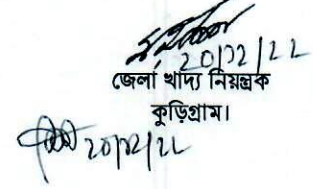 20/12/22
জেলা খাদ্য নিয়ন্ত্রক
কুড়িগ্রাম।
20/12/22